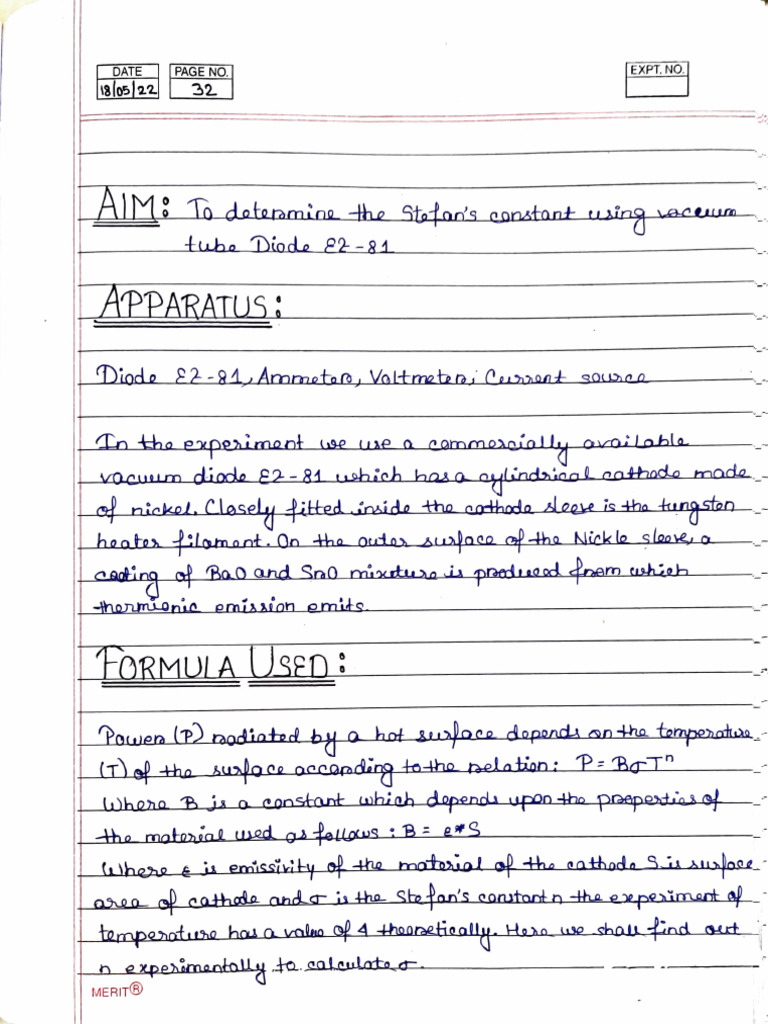 DATE PAGE NO. EXPT. NO.
18/05/22 32
AIM: To determine the Stefan's constant using vaccum
tube Diode EZ-81
APPARATUS:
Diode EZ-81, Ammeter, Voltmeter, Current source
In the experiment we use a commercially available
vacuum diode EZ-81 which has a cylindrical cathode made
of nickel. Closely fitted inside the cathode sleeve is the tungsten
heater filament. On the outer surface of the Nickle sleeve, a
coating of BaO and SnO mixture is produced from which
thermionic emission emits.
FORMULA USED:
Power (P) radiated by a hot surface depends on the temperature
(T) of the surface according to the relation: P = BσTⁿ
Where B is a constant which depends upon the properties of
the material used as follows: B = e*S
Where ε is emissivity of the material of the cathode S is surface
area of cathode and σ is the Stefan's constant n the experiment of
temperature has a value of 4 theoretically. Here we shall find out
n experimentally to calculate σ.
MERIT®